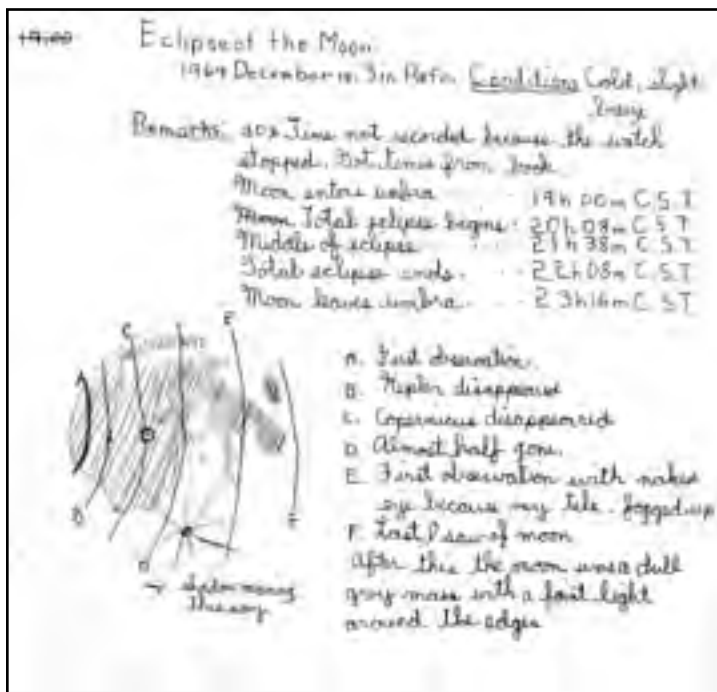 19:00
Eclipse of the Moon
1964 December 18. 3 in Refr. Conditions Cold, slight
Remarks: Time not recorded because the watch
stopped. Got times from book
Moon enters umbra 19h 00m C S T
Moon Total eclipse begins 20h 08m C S T
Middle of eclipse 21h 38m C S T
Total eclipse ends 22h 08m C S T
Moon leaves umbra 23h16m C S T
A
B
C
D
E
F
→ shadow moving
this way
A. First observation
B. Kepler disappeared
C. Copernicus disappeared
D. Almost half gone.
E. First observation with naked
eye because my tele. fogged up
F. Last I saw of moon
After this the moon was a dull
gray mass with a faint light
around the edges